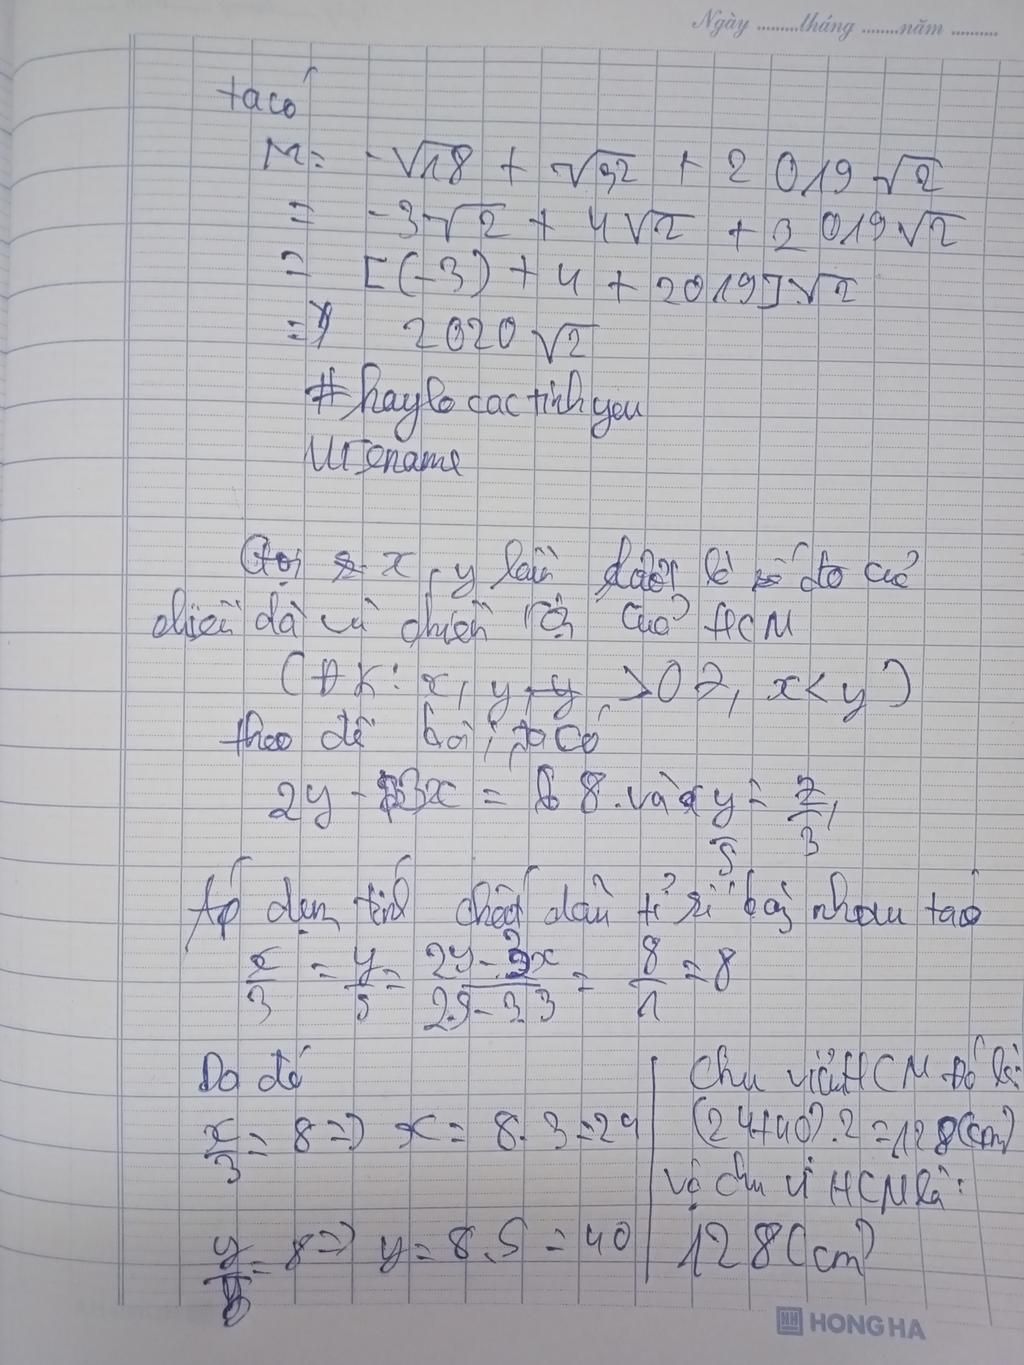 Ngày .........tháng ........năm ..........
ta có
M = -√18 + √32 + 2019√2
= -3√2 + 4√2 + 2019√2
= [(-3) + 4 + 2019]√2
=> 2020√2
# haylocactinhyeu
Gọi x, y lần là số đo củ
chiều dà và chiền củả HCN
(ĐK: x, y, y >0 , x < y)
theo đề bài, ta có
2y - 3x = 8. và y/5 =
Áp dụn tính chất dãu tỉ số bằ nhau ta có
x/3 = y/5 = 2y-3x/2.5-3.3 = 8/1 = 8
Do đó
x/3 = 8 => x = 8.3 = 24
y/5 = 8 => y = 8.5 = 40
Chu vi HCN đó là
(24+40).2 = 128(cm)
vậ chu vi HCN là:
128(cm)
HH HONG HA